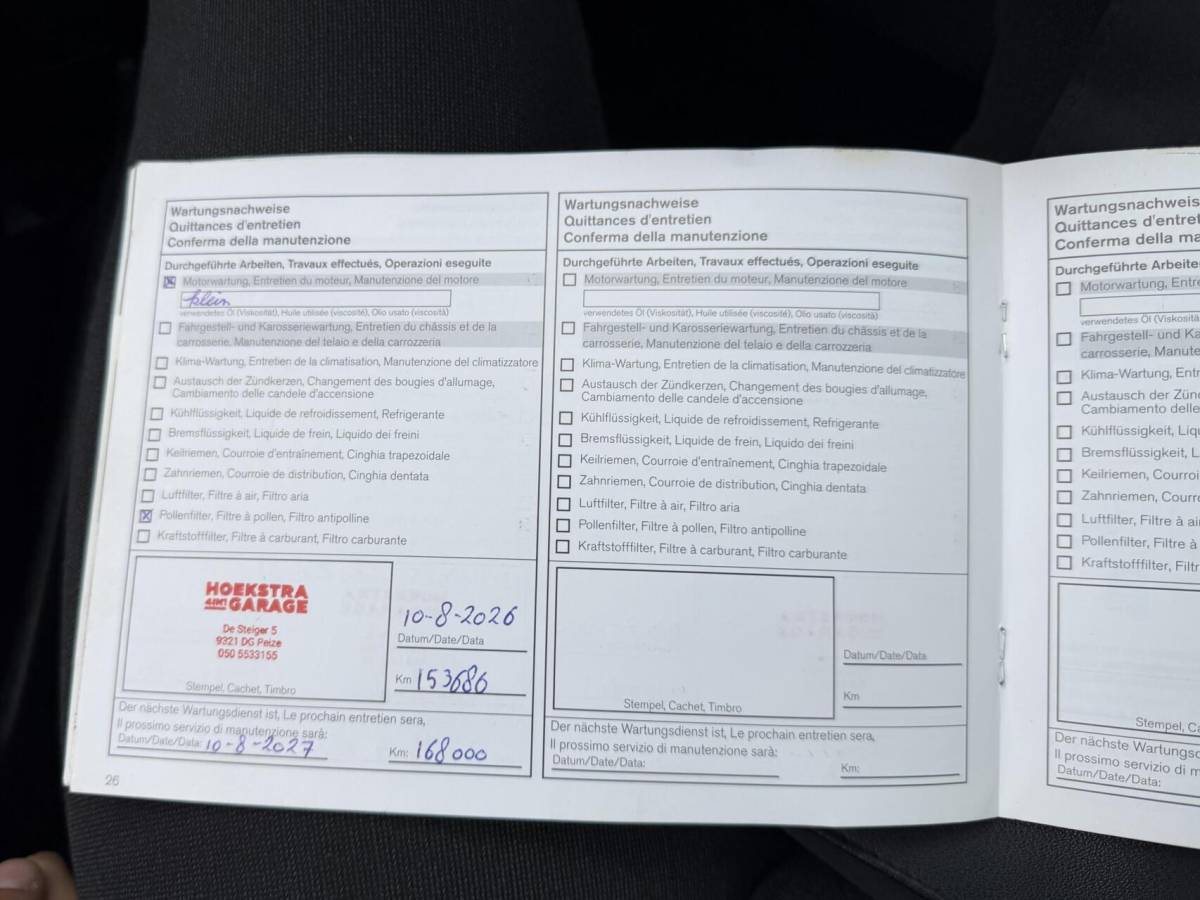 Wartungsnachweise
Quittances d'entretien
Conferma della manutenzione
Durchgeführte Arbeiten, Travaux effectués, Operazioni eseguite
Motorwartung, Entretien du moteur, Manutenzione del motore
klein
verwendetes Öl (Viskosität), Huile utilisée (viscosité), Olio usato (viscosità)
Fahrgestell- und Karosseriewartung, Entretien du châssis et de la
carrosserie, Manutenzione del telaio e della carrozzeria
Klima-Wartung, Entretien de la climatisation, Manutenzione del climatizzatore
Austausch der Zündkerzen, Changement des bougies d'allumage,
Cambiamento delle candele d'accensione
Kühlflüssigkeit, Liquide de refroidissement, Refrigerante
Bremsflüssigkeit, Liquide de frein, Liquido dei freini
Keilriemen, Courroie d'entraînement, Cinghia trapezoidale
Zahnriemen, Courroie de distribution, Cinghia dentata
Luftfilter, Filtre à air, Filtro aria
Pollenfilter, Filtre à pollen, Filtro antipolline
Kraftstofffilter, Filtre à carburant, Filtro carburante
HOEKSTRA
4IN1 GARAGE
De Steiger 5
9321 DG Peize
050 5533155
Stempel, Cachet, Timbro
10-8-2026
Datum/Date/Data
Km 153686
Der nächste Wartungsdienst ist, Le prochain entretien sera,
Il prossimo servizio di manutenzione sarà:
Datum/Date/Data: 10-8-2027 Km: 168000
26
Wartungsnachweise
Quittances d'entretien
Conferma della manutenzione
Durchgeführte Arbeiten, Travaux effectués, Operazioni eseguite
Motorwartung, Entretien du moteur, Manutenzione del motore
verwendetes Öl (Viskosität), Huile utilisée (viscosité), Olio usato (viscosità)
Fahrgestell- und Karosseriewartung, Entretien du châssis et de la
carrosserie, Manutenzione del telaio e della carrozzeria
Klima-Wartung, Entretien de la climatisation, Manutenzione del climatizzatore
Austausch der Zündkerzen, Changement des bougies d'allumage,
Cambiamento delle candele d'accensione
Kühlflüssigkeit, Liquide de refroidissement, Refrigerante
Bremsflüssigkeit, Liquide de frein, Liquido dei freini
Keilriemen, Courroie d'entraînement, Cinghia trapezoidale
Zahnriemen, Courroie de distribution, Cinghia dentata
Luftfilter, Filtre à air, Filtro aria
Pollenfilter, Filtre à pollen, Filtro antipolline
Kraftstofffilter, Filtre à carburant, Filtro carburante
Stempel, Cachet, Timbro
Datum/Date/Data
Km
Der nächste Wartungsdienst ist, Le prochain entretien sera,
Il prossimo servizio di manutenzione sarà:
Datum/Date/Data: Km:
Wartungsnachweis
Quittances d'entret
Conferma della ma
Durchgeführte Arbeite
Motorwartung, Entre
verwendetes Öl (Viskosit
Fahrgestell- und Ka
carrosserie, Manute
Klima-Wartung, Ent
Austausch der Zünd
Cambiamento delle
Kühlflüssigkeit, Liqu
Bremsflüssigkeit, L
Keilriemen, Courroi
Zahnriemen, Courr
Luftfilter, Filtre à ai
Pollenfilter, Filtre à
Kraftstofffilter, Filtr
Stempel, C
Der nächste Wartungsd
Il prossimo servizio di m
Datum/Date/Data: